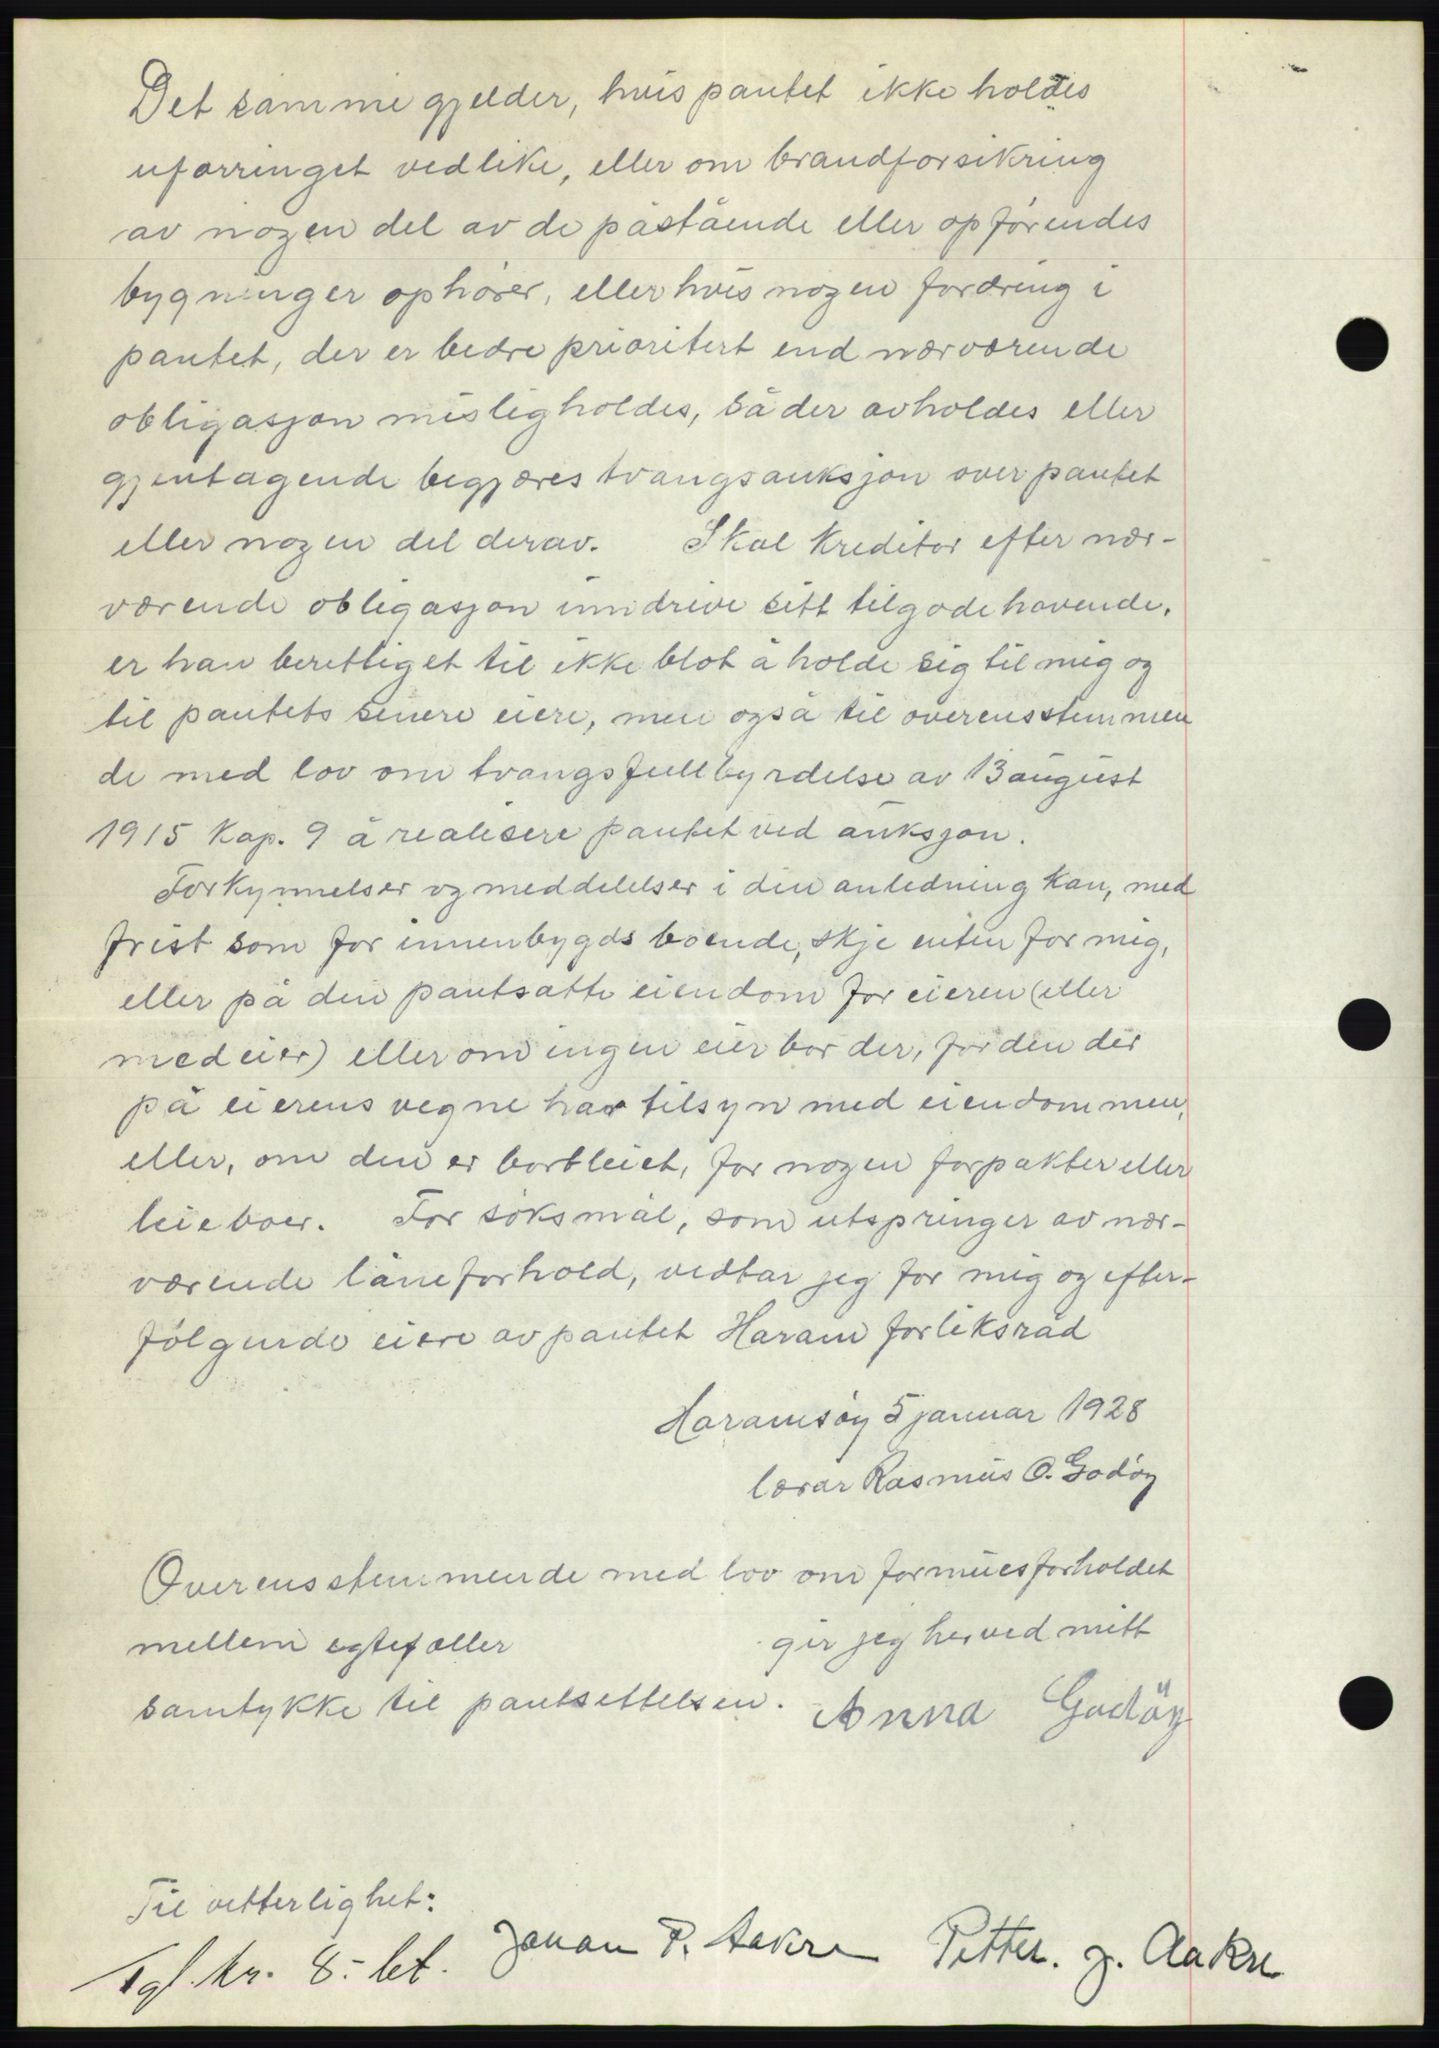 Det samme gjelder, hvis pantet ikke holdes
uforringet vedlike, eller om brandforsikring
av nogen del av de påstående eller opførendes
bygninger ophører, eller hvis nogen fordring i
pantet, der er bedre prioritert end nærværende
obligasjon misligholdes, så der avholdes eller
gjentagende begjæres tvangsauksjon over pantet
eller nogen del derav. Skal kreditor efter nær-
værende obligasjon inndrive sitt tilgodehavende,
er han berettiget til ikke blot å holde sig til mig og
til pantets senere eiere, men også til overensstemmen
de med lov om tvangsfullbyrdelse av 13 august
1915 Kap. 9 å realisere pantet ved auksjon.
Forkynnelser og meddelelser i den anledning kan, med
frist som for innenbygds boende, skje enten for mig,
eller på den pantsatte eiendom for eieren (eller
medeier) eller om ingen eier bor der, for den der
på eierens vegne har tilsyn med eiendommen,
eller, om den er bortleiet, for nogen forpakter eller
leieboer. For søksmål, som utspringer av nær-
værende låneforhold, vedtar jeg for mig og efter-
følgende eiere av pantet Haram forliksråd
Haramsøy 5 januar 1928
lærar Rasmus O. Godøy
Overensstemmende med lov om formuesforholdet
mellem egtefæller gir jeg herved mitt
samtykke til pantsettelsen. Anna Godöy
Til vitterlighet:
Johan P. Aakre Petter. J. Aakre
Tgf. kr. 8.- bet.